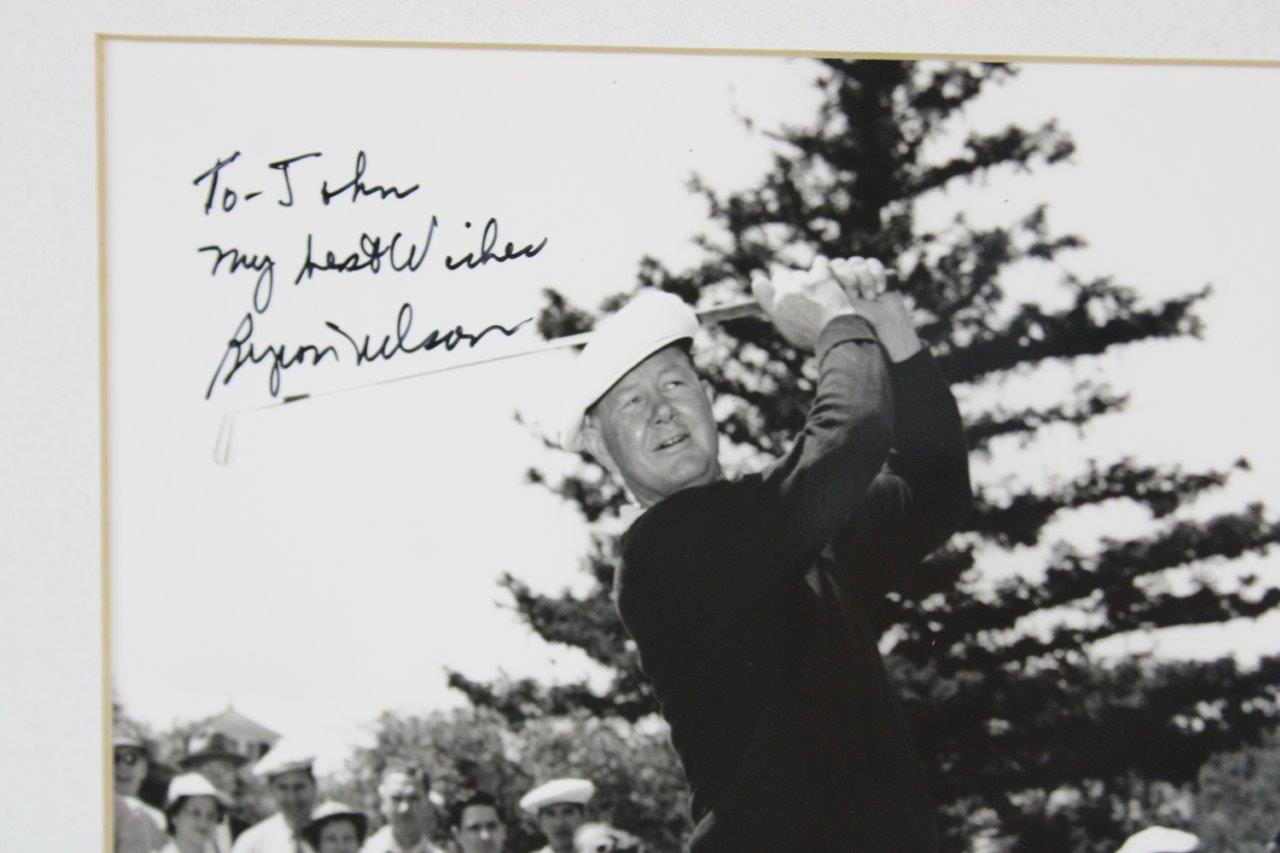 To-John
My best Wishes
Byron Nelson